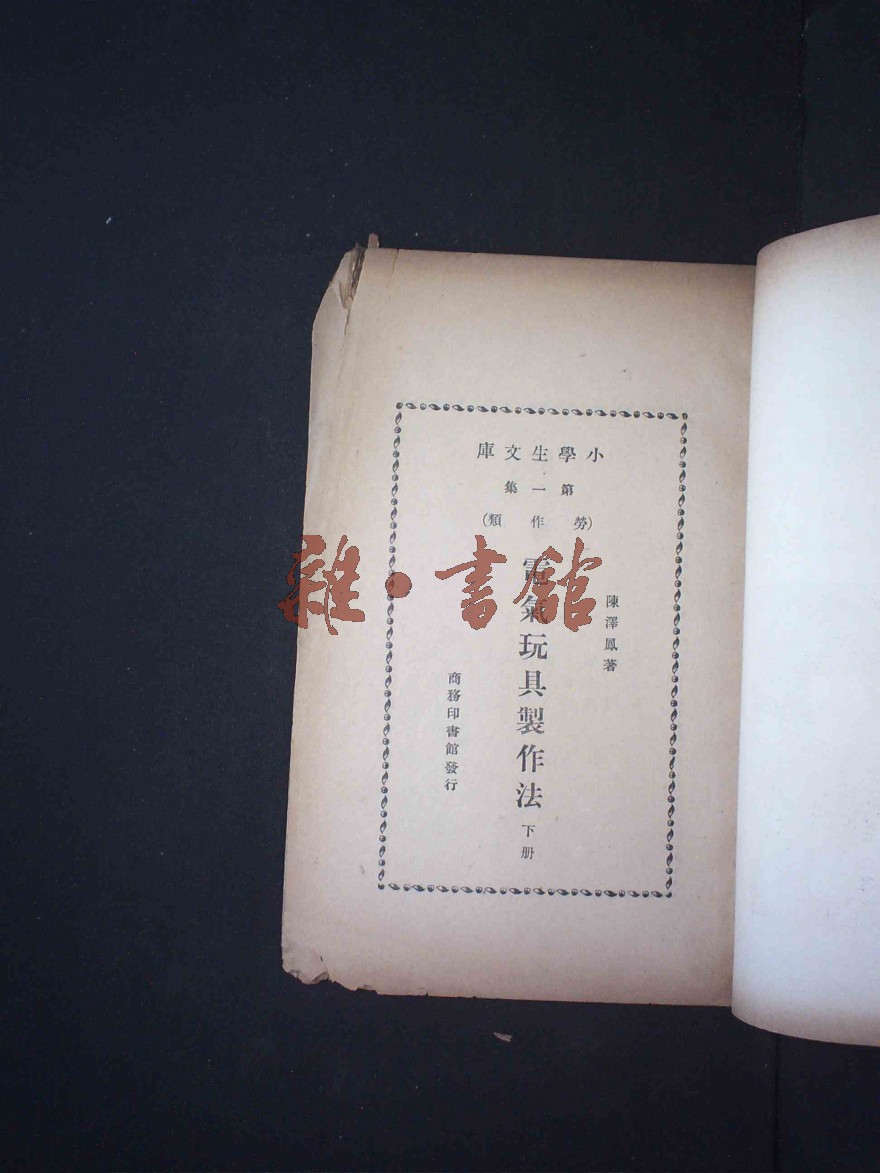 小學生文庫
第一集
(勞作類)
陳澤鳳著
電氣玩具製作法 下册
商務印書館發行
雜·書館